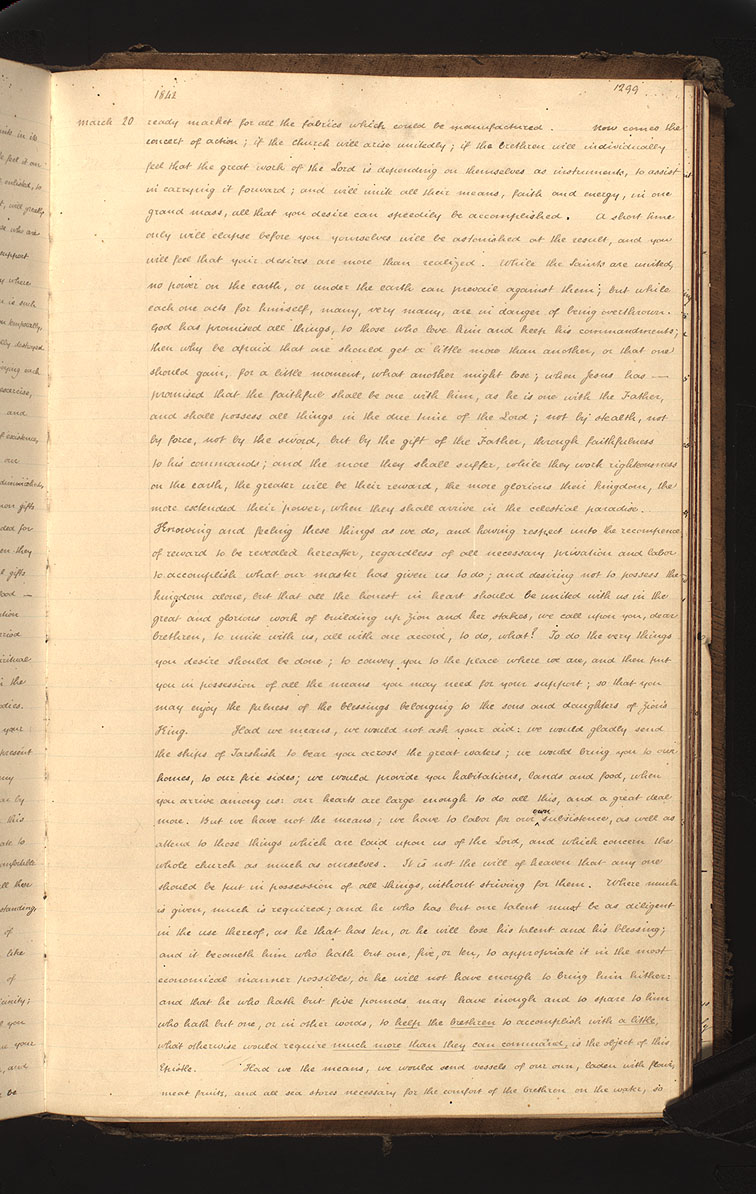 1842
1299
March 20 ready market for all the fabrics which could be manufactured. Now comes the
concert of action; if the church will arise unitedly; if the brethren will individually
feel that the great work of the Lord is depending on themselves as instruments, to assist
in carrying it forward; and will unite all their means, faith and energy, in one
grand mass, all that you desire can speedily be accomplished. A short time
only will elapse before you yourselves will be astonished at the result, and you
will feel that your desires are more than realized. While the Saints are united,
no power on the earth, or under the earth can prevail against them; but while
each one acts for himself, many, very many, are in danger of being overthrown.
God has promised all things, to those who love him and keep his commandments;
then why be afraid that one should get a little more than another, or that one
should gain, for a little moment, what another might lose; when Jesus has —
promised that the faithful shall be one with him, as he is one with the Father,
and shall possess all things in the due time of the Lord; not by stealth, not
by force, not by the sword, but by the gift of the Father, through faithfulness
to his commands; and the more they shall suffer, while they work righteousness
on the earth, the greater will be their reward, the more glorious their kingdom, the
more extended their power, when they shall arrive in the celestial paradise.
Knowing and feeling these things as we do, and having respect unto the recompence
of reward to be revealed hereafter, regardless of all necessary privation and labor
to accomplish what our master has given us to do; and desiring not to possess the
kingdom alone, but that all the honest in heart should be united with us in the
great and glorious work of building up Zion and her stakes, we call upon you, dear
brethren, to unite with us, all with one accord, to do, what? To do the very things
you desire should be done; to convey you to the place where we are, and then put
you in possession of all the means you may need for your support; so that you
may enjoy the fulness of the blessings belonging to the sons and daughters of Zion's
King. Had we means, we would not ask your aid: we would gladly send
the ships of Tarshish to bear you across the great waters; we would bring you to our
homes, to our fire sides; we would provide you habitations, lands and food, when
you arrive among us: our hearts are large enough to do all this, and a great deal
more. But we have not the means; we have to labor for our own subsistence, as well as
attend to those things which are laid upon us of the Lord, and which concern the
whole church as much as ourselves. It is not the will of heaven that any one
should be put in possession of all things, without striving for them. Where much
is given, much is required; and he who has but one talent must be as diligent
in the use thereof, as he that has ten, or he will lose his talent and his blessing;
and it becometh him who hath but one, five, or ten, to appropriate it in the most
economical manner possible, or he will not have enough to bring him hither:
and that he who hath but five pounds may have enough and to spare to him
who hath but one, or in other words, to help the brethren to accomplish with a little,
what otherwise would require much more than they can command, is the object of this
Epistle. Had we the means, we would send vessels of our own, laden with flour,
meat fruits, and all sea stores necessary for the comfort of the brethren on the water, so